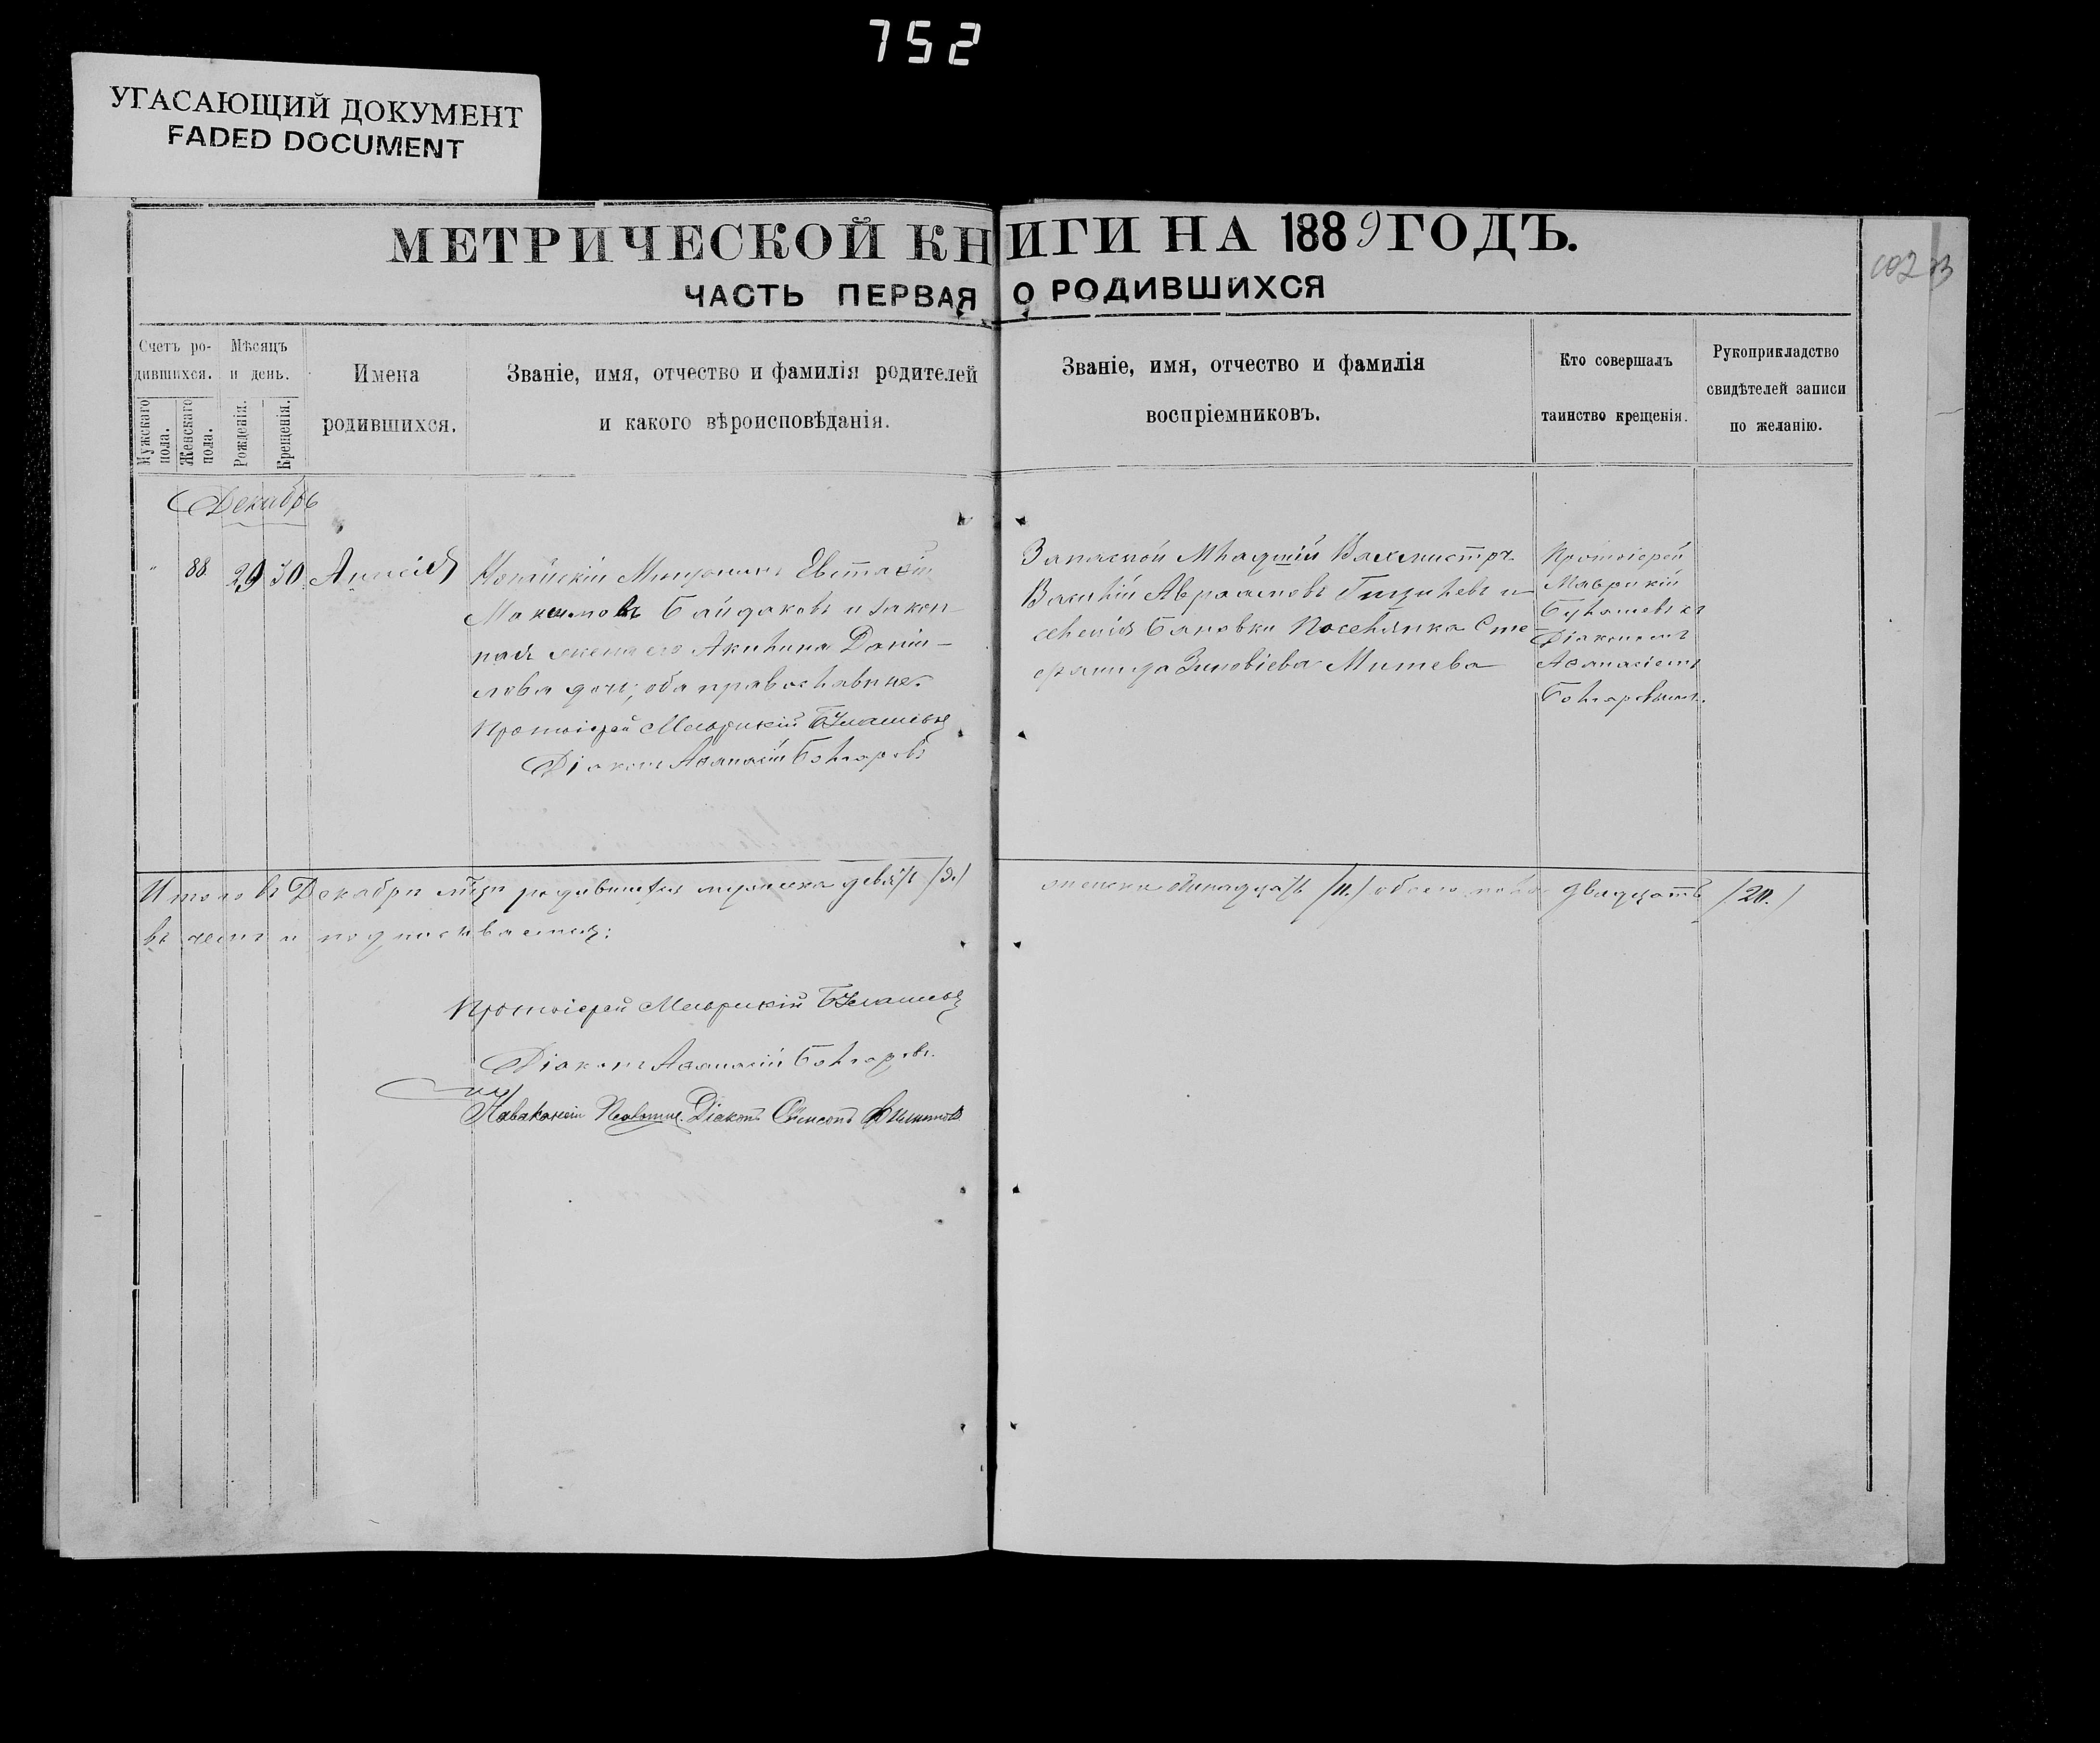 752
УГАСАЮЩИЙ ДОКУМЕНТ
FADED DOCUMENT
МЕТРИЧЕСКОЙ КНИГИ НА 1889 ГОДЪ.
ЧАСТЬ ПЕРВАЯ О РОДИВШИХСЯ
Счетъ родившихся.
Мужскаго пола.
Женскаго пола.
Мѣсяцъ и день.
Рожденія.
Крещенія.
Имена
родившихся.
Званіе, имя, отчество и фамилія родителей
и какого вѣроисповѣданія.
Званіе, имя, отчество и фамилія
воспріемниковъ.
Кто совершалъ
таинство крещенія.
Рукоприкладство
свидѣтелей записи
по желанію.
Декабрь
" 88. 29 30 Анисія
Мещанинъ Евстафій
Максимовъ Байдаковъ и закон
ная жена его Акилина Даніи-
лова дочь; оба православные.
Протоіерей Маврикій
Діаконъ Аѳанасій Болгаровъ
Запасной Младшій Вахмистръ
Василій Авраамовъ и
селенія Бановки Поселянка Сте
фанида Зиновіева Митева
Протоіерей
Маврикій
съ
Діакономъ
Аѳанасіемъ
Болгаровымъ.
Итого въ Декабрѣ м-цѣ родившихся мужеска девять /9./ женска одинадцать /11./ обоего пола двадцать /20./
въ чемъ и подписываемся:
Протоіерей Маврикій
Діаконъ Аѳанасій Болгаровъ.
Псаломщ. Діаконъ Сѵмеонъ